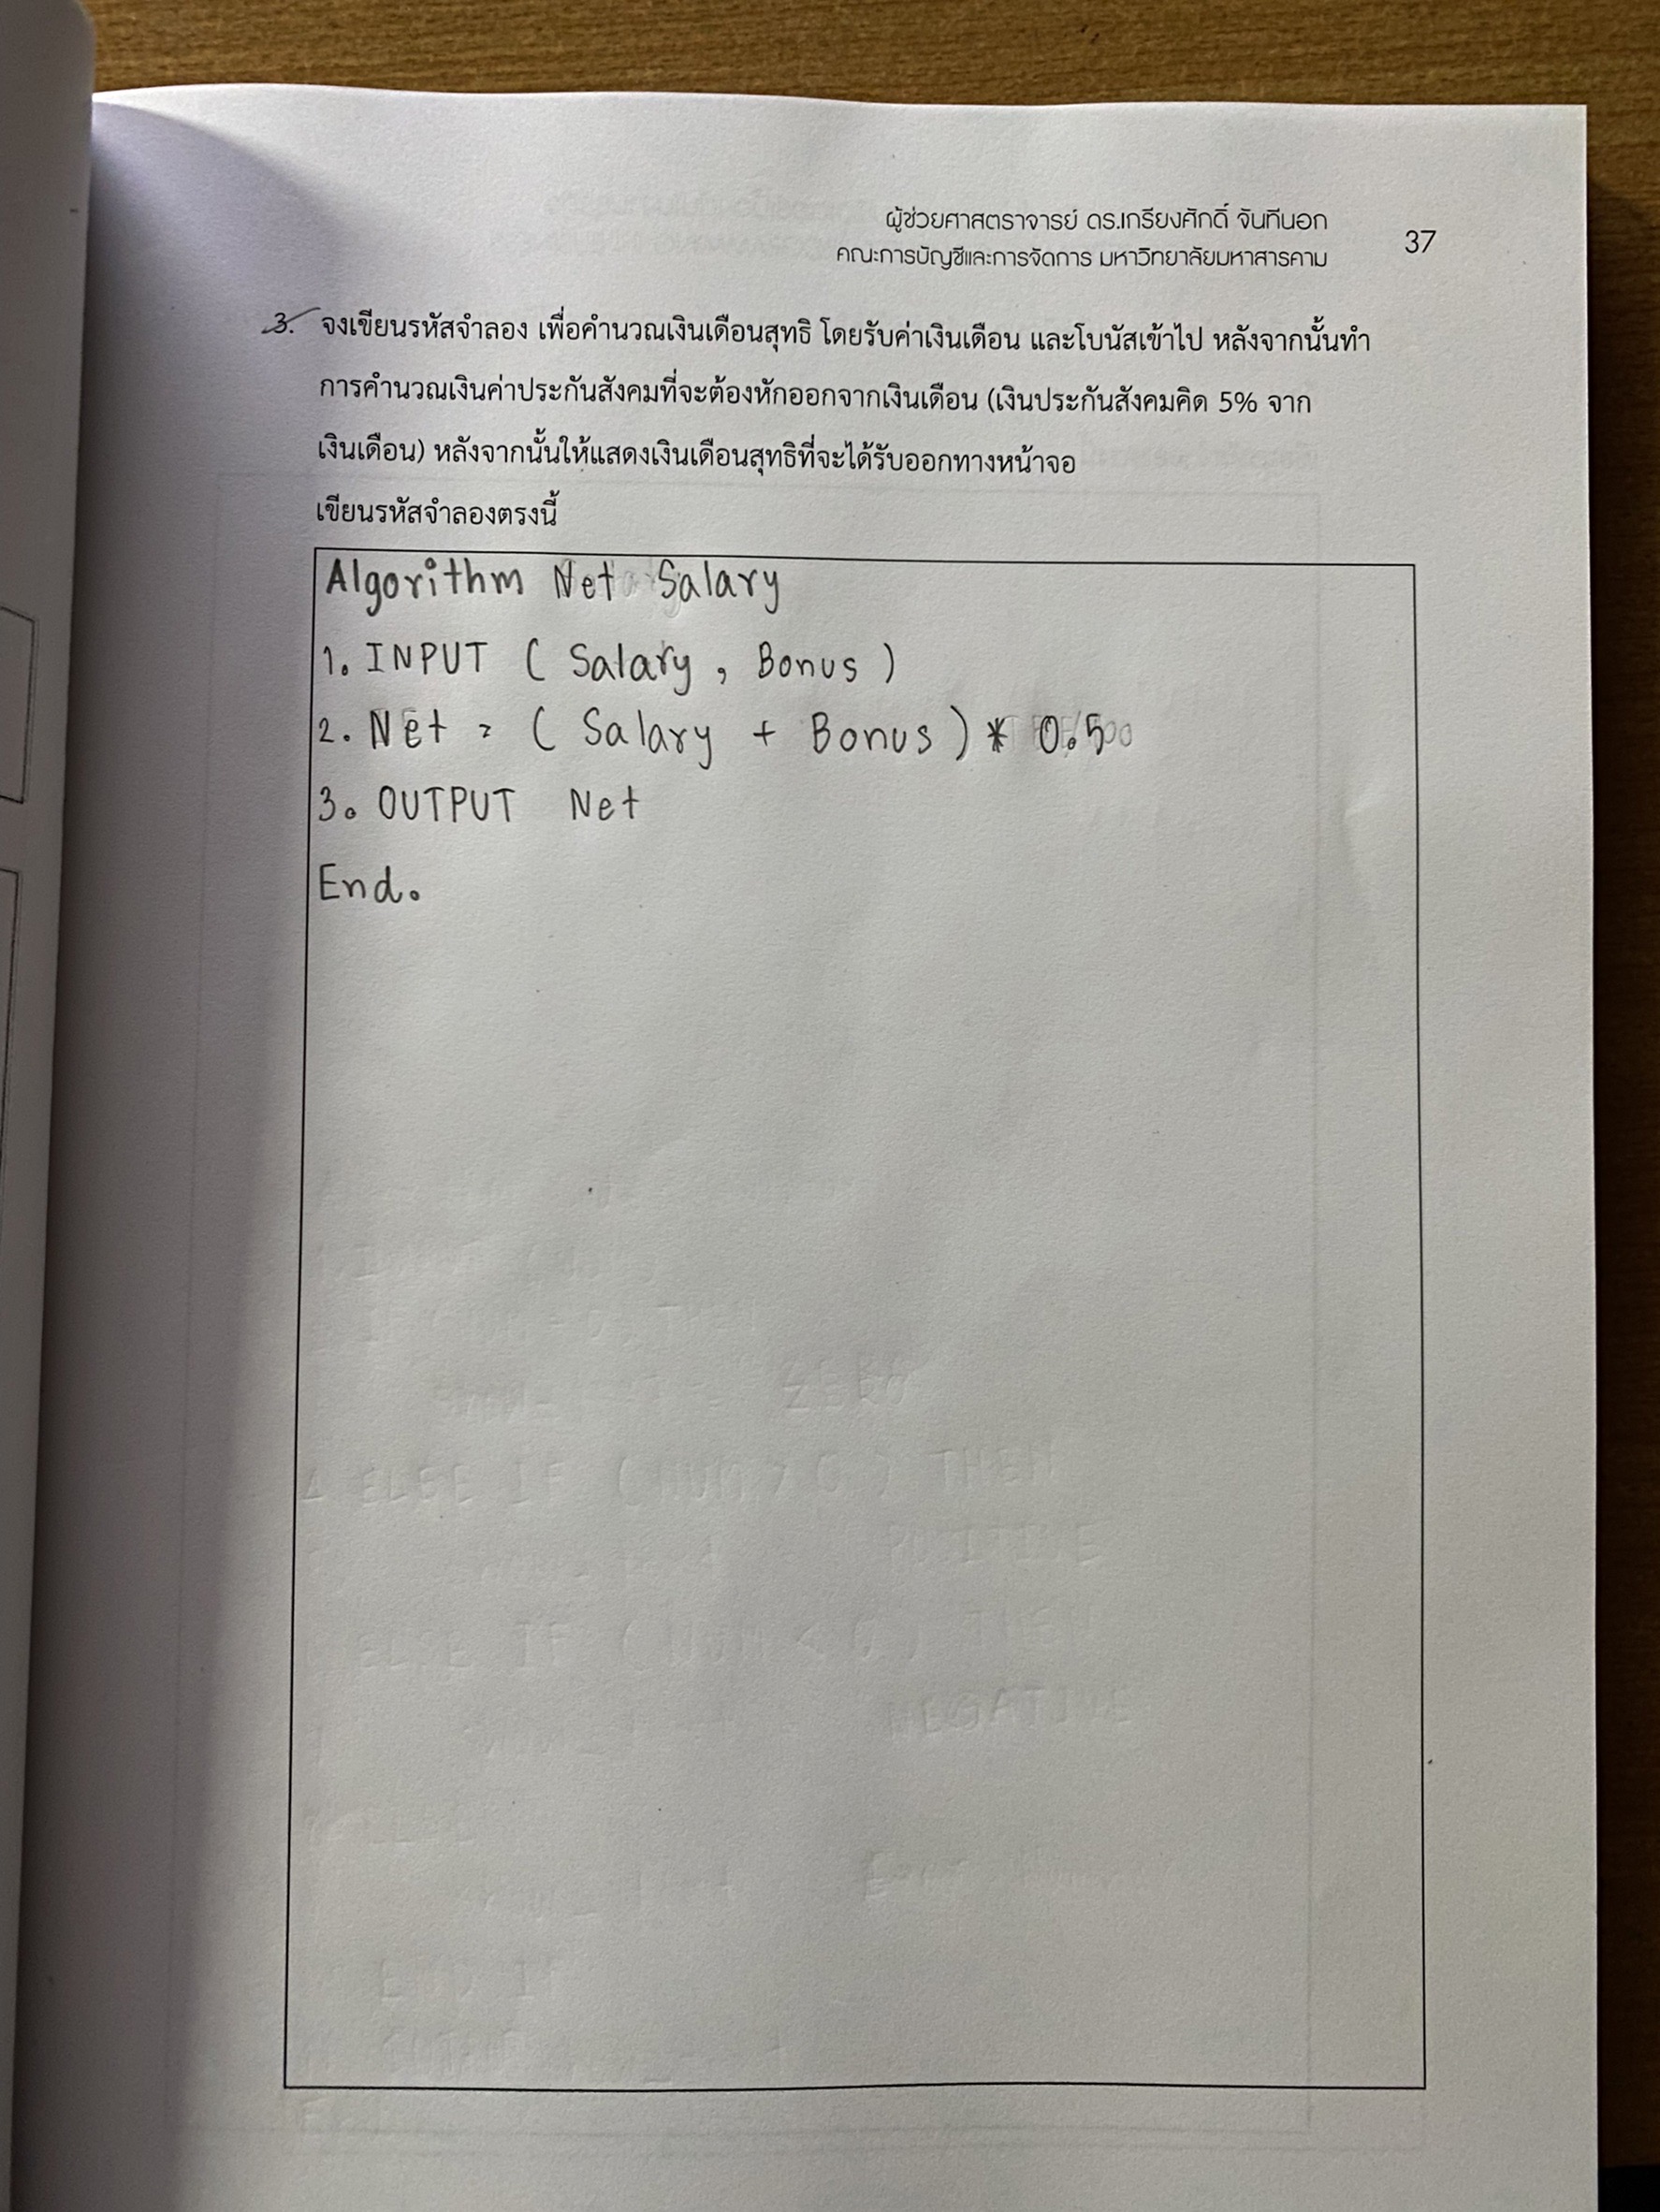 ผู้ช่วยศาสตราจารย์ ดร.เกรียงศักดิ์ จันทีนอก
คณะการบัญชีและการจัดการ มหาวิทยาลัยมหาสารคาม
37
3. จงเขียนรหัสจำลอง เพื่อคำนวณเงินเดือนสุทธิ โดยรับค่าเงินเดือน และโบนัสเข้าไป หลังจากนั้นทำ
การคำนวณเงินค่าประกันสังคมที่จะต้องหักออกจากเงินเดือน (เงินประกันสังคมคิด 5% จาก
เงินเดือน) หลังจากนั้นให้แสดงเงินเดือนสุทธิที่จะได้รับออกทางหน้าจอ
เขียนรหัสจำลองตรงนี้
Algorithm Net Salary
1. INPUT ( Salary , Bonus )
2. Net = ( Salary + Bonus ) * 0.5
3. OUTPUT Net
End.